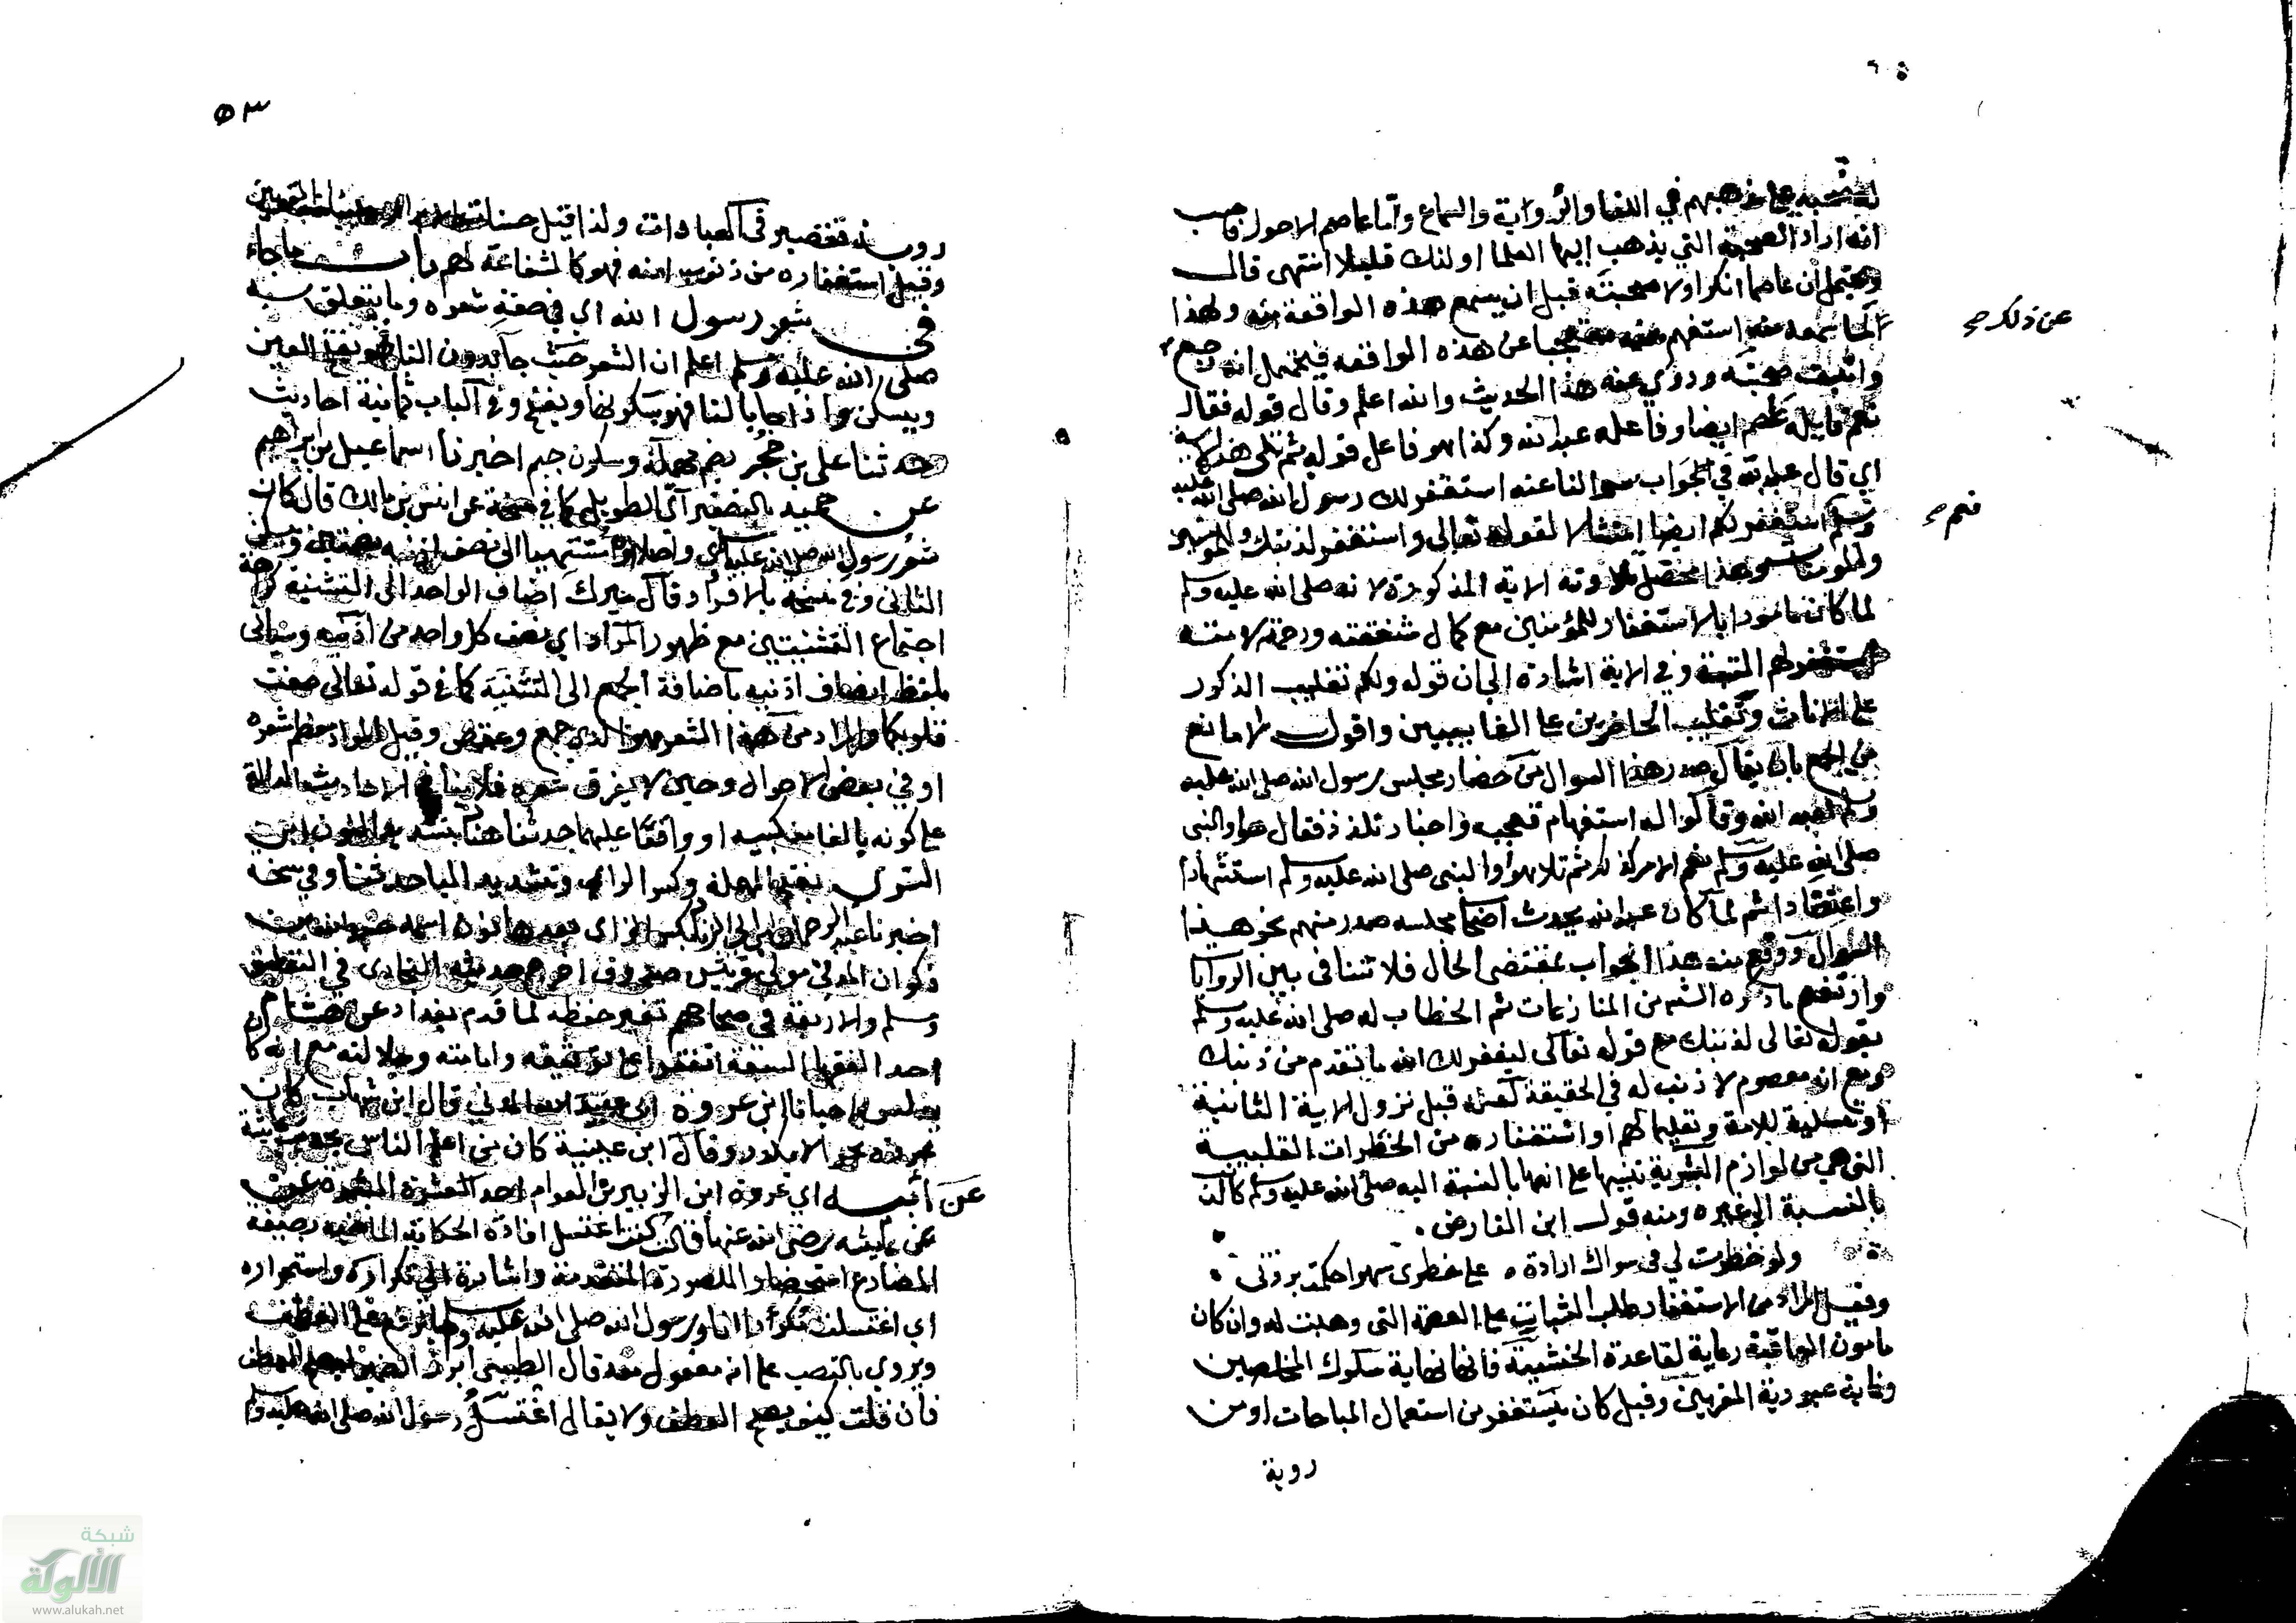 في اللقا والرواية والسماع وأما عاصم الاحول فاحسب
انه اراد الصحبة التي يذهب إليها العلما اولئك قليل انتهى قال
ويحتمل ان عاصما انكر اولا صحبته قبل ان يسمع هذه الواقعة منه ولهذا
لما سمعه منه استفهم عن هذه الواقعه فيحتمل انه رجع
عن ذلك صح
واثبت صحبته وروى عنه هذا الحديث والله اعلم وقال قوله فقال
نعم قايله عاصم ايضا وفاعله عبد الله وكذا هو فاعل قوله ثم تلى هذه الآية
اي قال عبد الله في الجواب سوالنا عنه استغفر لك رسول الله صلى الله عليه
نعم صح
وسلم استغفر لكم ايضا امتثالا لقوله تعالى واستغفر لذنبك وللمومنين
والمومنات وهذا محصل تلاوته الاية المذكورة لانه صلى الله عليه وسلم
لما كان مامورا بالاستغفار للمؤمنين مع كمال شفقته ورحمته لامته
لهم البتة وفي الاية اشارة الى ان قوله ولكم تغليب الذكور
على الاناث وتغليب الحاضرين على الغايبين واقول لا مانع
من الجمع بان يقال صدر هذا السوال من حضار مجلس رسول الله صلى الله عليه
وسلم لعبد الله وقالوا له استفهام تعجب واخبار تلذذ فقال هو او النبي
صلى الله عليه وسلم نعم الامر كذلك ثم تلا هو او النبي صلى الله عليه وسلم استشهادا
واعتضادا ثم لما كان عبد الله يحدث اصحاب مجلسه صدر منهم نحو هذا
السوال ووقع منه هذا الجواب بمقتضى الحال فلا تنافى بين الروايات
وارتفع ما ذكره الشه من المنازعات ثم الخطاب له صلى الله عليه وسلم
بقوله تعالى لذنبك مع قوله تعالى ليغفر لك الله ما تقدم من ذنبك
ومع انه معصوم لا ذنب له في الحقيقة لعله قبل نزول الاية الثانية
او تسلية للامة وتعليما لهم او استغفاره من الخطرات القلبية
التي هي من لوازم البشرية تنبيها على انها بالنسبة اليه صلى الله عليه وسلم كالذنب
بالنسبة الى غيره ومنه قول ابن الفارض
ولو خطرت لي في سواك ارادة على خاطرى سهوا حكمت بردتي
وقيل المراد من الاستغفار طلب الثبات على العصمة التي وهبت له وان كان
مامون العاقبة رعاية لقاعدة الخشية فانها نهاية سلوك المخلصين
وغاية عبودية المقربين وقيل كان يستغفر من استعمال المباحات او من
روية
٥٣
روية تقصير في العبادات ولذا قيل حسنات
وقيل استغفاره من ذنوب امته فهو كالشفاعة لهم باب ما جاء
في شعر رسول الله اي في صفة شعره وما يتعلق به
صلى الله عليه وسلم اعلم ان الشعر حيث جاء بدون التا فهو بفتح العين
ويسكن واذا جا بالتا فهو بسكونها ويفتح وفي الباب ثمانية احاديث
حدثنا على بن حجر بضم مهملة وسكون جيم اخبرنا اسماعيل بن ابراهيم
عن حميد بالتصغير اي الطويل كما في نسخة عن انس بن مالك قال كان
شعر رسول الله صلى الله عليه وسلم اي واصلا او منتهيا الى نصف اذنيه بضمتين وسكون
الثاني وفي نسخة بالافراد قال ميرك اضاف الواحد الى التثنية كراهة
اجتماع التثنيتين مع ظهور المراد اي نصف كل واحد من اذنيه وسياتي
بلفظ انصاف اذنيه باضافة الجمع الى التثنية كما في قوله تعالى صغت
قلوبكما والمراد من هذا الشعر هو الذي جمع وعقص وقيل المراد معظم شعره
او في بعض الاحوال وحين لا يفرق شعره فلا ينافي الاحاديث الدالة
على كونه بالغا منكبيه او واقعا عليهما حدثنا هناد بتشديد النون ابن
السري بفتح المهملة وكسر الراء وتشديد اليا حدثنا وفي نسخة
اخبرنا عبد الرحمان بن ابي الزناد بكسر الزاى فنون اسمه عبد الله بن
ذكوان المدني مولى قريش صدوق اخرج حديثه البخارى في التعليق
ومسلم والاربعة في صحاحهم تغير حفظه لما قدم بغداد عن هشام بن
احد الفقها السبعة اتفقوا على توثيقه وامامته وجلالته مع انه كا
يدلس احيانا ابن عروة المدني قال ابن شهاب كان
عروة بحرا لا يكدر وقال ابن عيينة كان من اعلم الناس بحديث عايشة
عن أبيه اي عروة ابن الزبير بن العوام احد العشرة المبشرة
عن عايشه رضى الله عنها قالت كنت اغتسل افادة الحكاية الماضيه بصيغة
المضارع استحضارا للصورة المتقدمة واشارة الى تكراره واستمراره
اي اغتسلت تكرارا انا ورسول الله صلى الله عليه وسلم بالرفع على العطف
ويروى بالنصب على انه مفعول معه قال الطيبي ابرز الضمير ليصح العطف
فان قلت كيف يصح العطف ولا يقال اغتسل رسول الله صلى الله عليه وسلم
شبكة
الألوكة
www.alukah.net